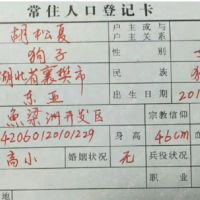 常住人口登记卡
胡松夏 户主或与户主关系
狗子 性别
湖北省襄樊市 民族
东亚 出生日期 201
鱼梁洲开发区 宗教信仰
42060120101229 身高 46cm
高小 婚姻状况 无 兵役状况
地